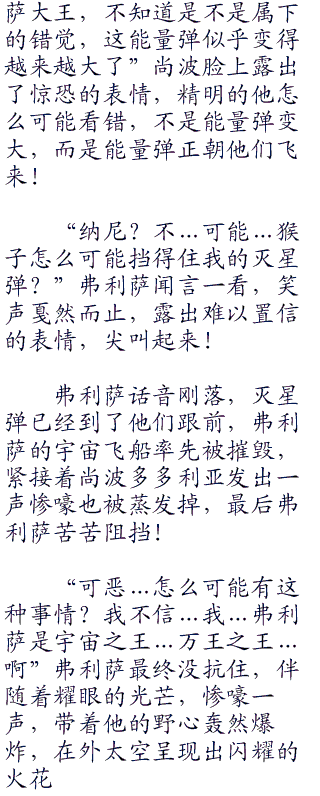 萨大王，不知道是不是属下
的错觉，这能量弹似乎变得
越来越大了”尚波脸上露出
了惊恐的表情，精明的他怎
么可能看错，不是能量弹变
大，而是能量弹正朝他们飞
来！
“纳尼？不…可能…猴
子怎么可能挡得住我的灭星
弹？”弗利萨闻言一看，笑
声戛然而止，露出难以置信
的表情，尖叫起来！
弗利萨话音刚落，灭星
弹已经到了他们跟前，弗利
萨的宇宙飞船率先被摧毁，
紧接着尚波多多利亚发出一
声惨嚎也被蒸发掉，最后弗
利萨苦苦阻挡！
“可恶…怎么可能有这
种事情？我不信…我…弗利
萨是宇宙之王…万王之王…
啊”弗利萨最终没抗住，伴
随着耀眼的光芒，惨嚎一
声，带着他的野心轰然爆
炸，在外太空呈现出闪耀的
火花